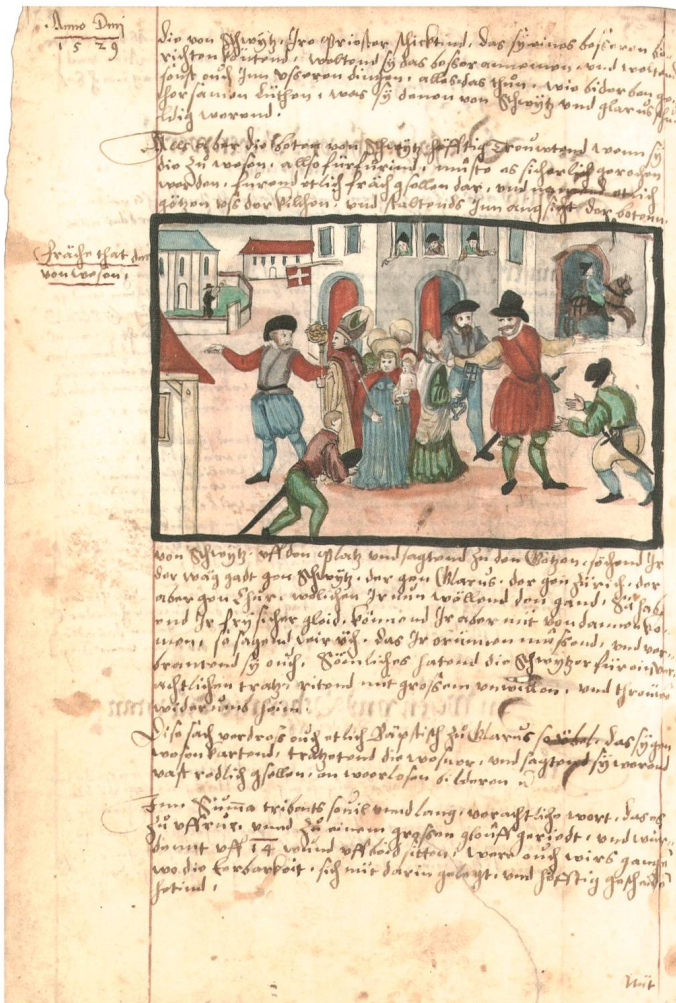 Anno Dni
1529
die von Schwytz, Ire Priester schicktind, das sy eines besseren be-
richten köntend, weltend sy das besser annemen, und welt
sonst ouch Inn üsseren dingen, alles das thun, wie biderben
horsamen Lüthen, was sy denen von Schwytz und Glarus schu-
ldig werend.
Alls aber die botten von Schwytz hefftig tröuwtend wenn sy
die zu wesen, allso fürfürind, müste es sicherlich gerochen
werden, fürend etlich fräch gsellen dar, und etlich
götzen uss der kilchen, und staltends Inn angsicht der botten
fräche that deren
von Wesen.
von Schwytz, uff den Platz und sagtend zu den Götzen, sehend Ir
der wäg gadt gen Schwytz, der gen Glarus, der gen Zürich, der
aber gen Chur, welichen Ir nun wöllend den gand, Zu hab
end Ir fry sicher gleid, könnend Ir aber nit von dannen ko-
men, so sagend wir üch, das Ir brünnen müssend, und ver-
brantend sy ouch, Sömliches hatend die Schwytzer für ein ver
achtlichen tratz, ritend mit grossem unwillen, und
widerumb heim.
Dise sach verdross ouch etlich Bäpstisch zu Glarus so übel, das sy gen
wesen kartend, tratzetend die weser, und sagtend sy werend
vast redlich gsellen, an weerlosen bilderen
Inn Summa tribents souil unnd lang, verachtliche wort, das es
zu uffrur, unnd zu einem grossen glöuff geriedt, und wur-
dennt uff 14 wund uff beid sitten, were ouch wirs gange
wo die Eerbarkeit, sich nüt darin gelegt, und hefftig gescheiden
hetind.
Nüt